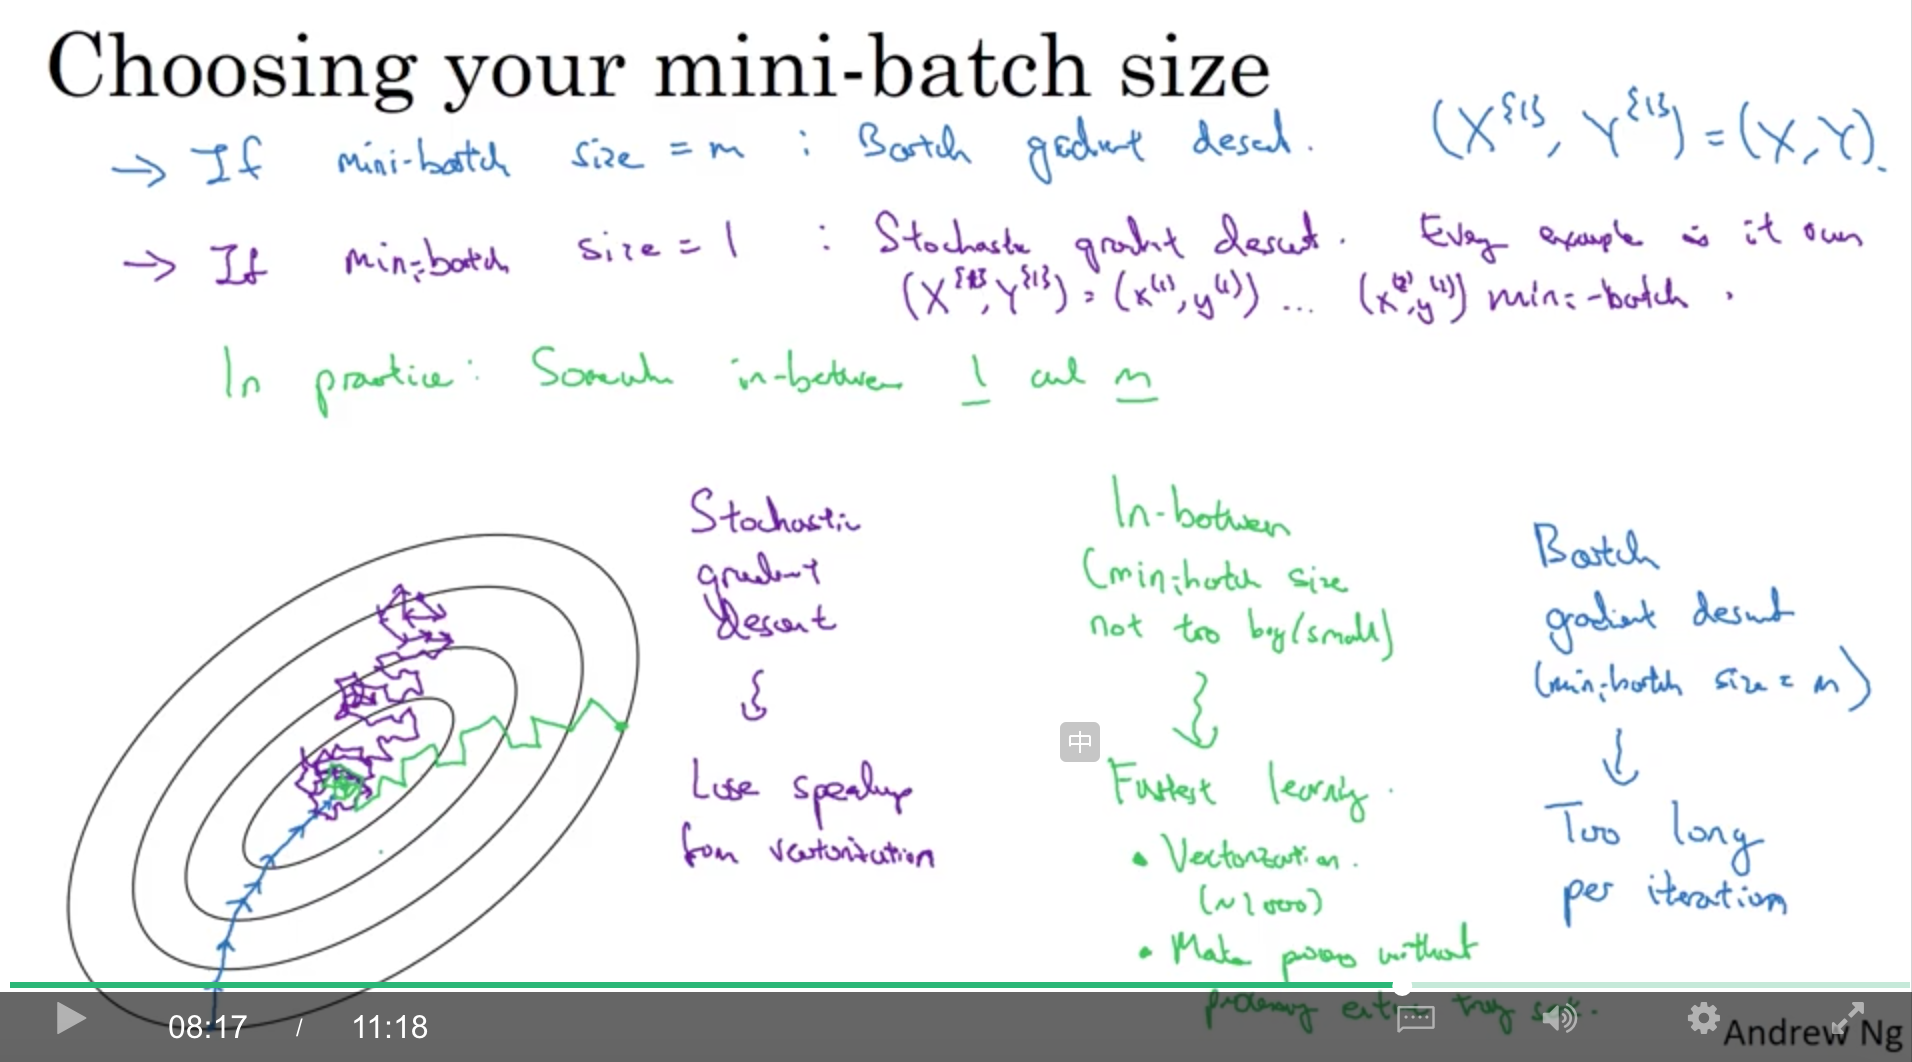 Choosing your mini-batch size
→ If mini-batch size = m : Batch gradient descent. (X^{1}, Y^{1}) = (X, Y).
→ If mini-batch size = 1 : Stochastic gradient descent. Every example is it own
(X^{1}, Y^{1}) = (x^(1), y^(1)) ... (x^(2), y^(2)) mini-batch.
In practice: Somewhere in-between 1 and m
Stochastic
gradient
descent
Lose speedup
from vectorization
In-between
(mini-batch size
not too big/small)
Fastest learning.
• Vectorization.
(~1000)
• Make progress without
processing entire training set.
Batch
gradient descent
(mini-batch size = m)
Too long
per iteration
中
08:17 / 11:18
Andrew Ng